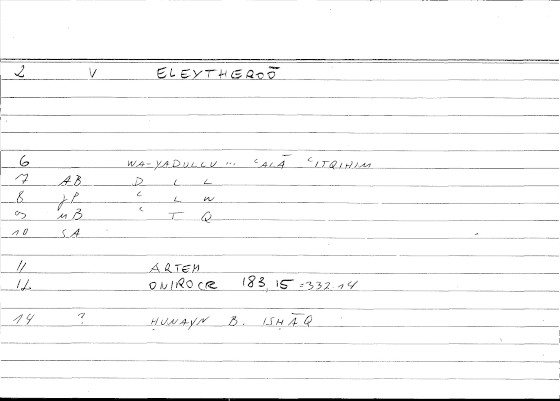 2 V ELEYTHEROŌ
6 WA-YADULLU ... ʿALĀ ʿITQIHIM
7 AB D L L
8 JP ʿ L W
9 NB ʿ T Q
10 SA
11 ARTEM
12 ONIROCR 183,15 =332.14
14 ? ḤUNAYN B. ISḤĀQ